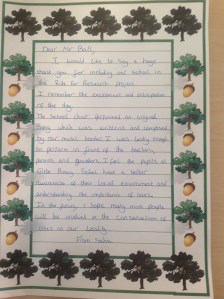 Dear Mr. Ball,
I would like to say a huge
thank you for including our school in
the Tree for Research project.
I remember the excitement and anticipation
of the day.
The School choir performed an original
Song which was written and composed
by our music teacher. I was lucky enough
to perform in front of the teachers,
parents and governors. I feel the pupils of
Primary School have a better
awareness of their local environment and
understanding the importance of trees.
In the future, I hope many more pupils
will be involved in the conservation of
trees in our locality.